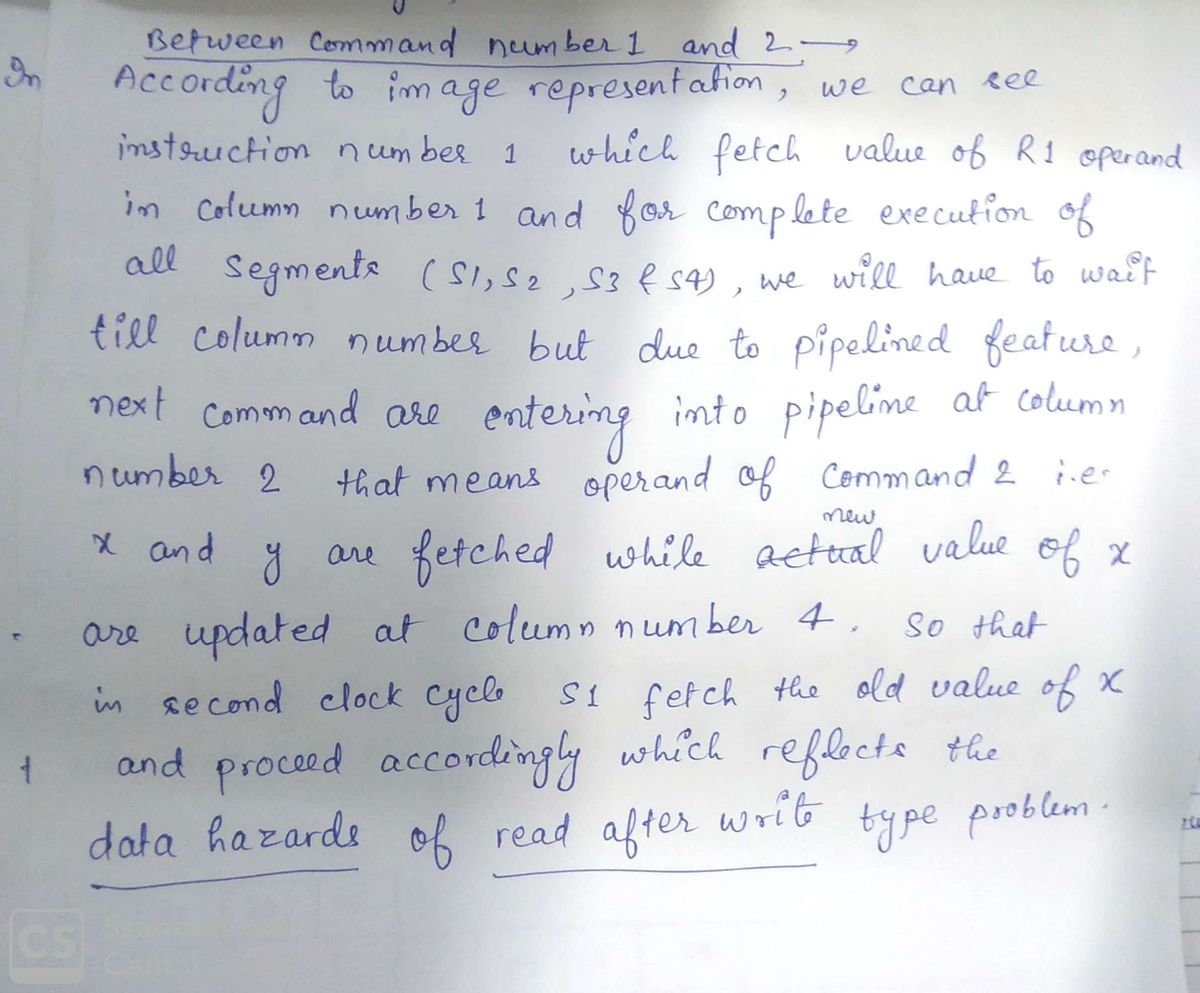 Between Command number 1 and 2 →
In According to image representation, we can see
instruction number 1 which fetch value of R1 operand
in column number 1 and for complete execution of
all segments (S1, S2, S3 & S4), we will have to wait
till column number but due to pipelined feature,
next command are entering into pipeline at column
number 2 that means operand of Command 2 i.e.
new
x and y are fetched while actual value of x
are updated at column number 4. So that
in second clock cycle S1 fetch the old value of x
and proceed accordingly which reflects the
data hazards of read after write type problem.
CS